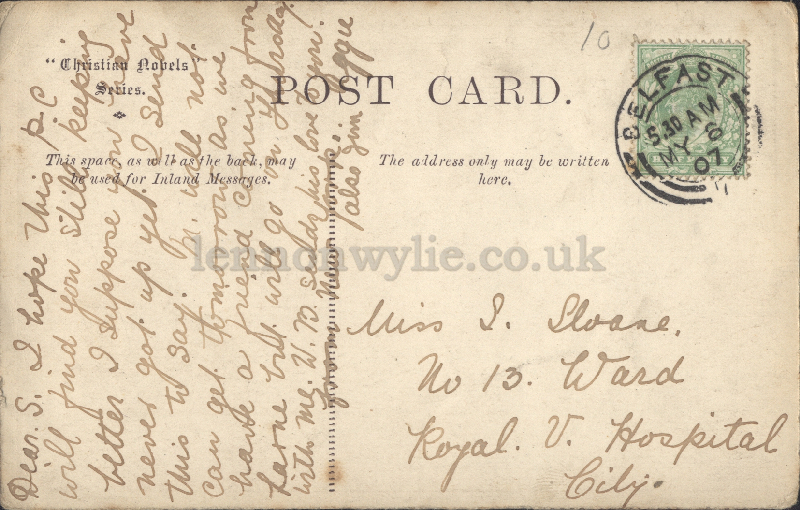 "Christian Novels"
Series.
POST CARD.
10
BELFAST
5.30 AM
MY 6
07
This space, as well as the back, may
be used for Inland Messages.
The address only may be written
here.
Dear. S. I hope this P.C
will find you still keeping
better I suppose you have
never got up yet. I send
this to say. I will not
can get tomorrow as we
have a friend coming from
Larne but will go on
with me. W. B. sends his love
also Jim
Miss S. Sloane.
No 13. Ward
Royal. V. Hospital
City.
lennonwylie.co.uk